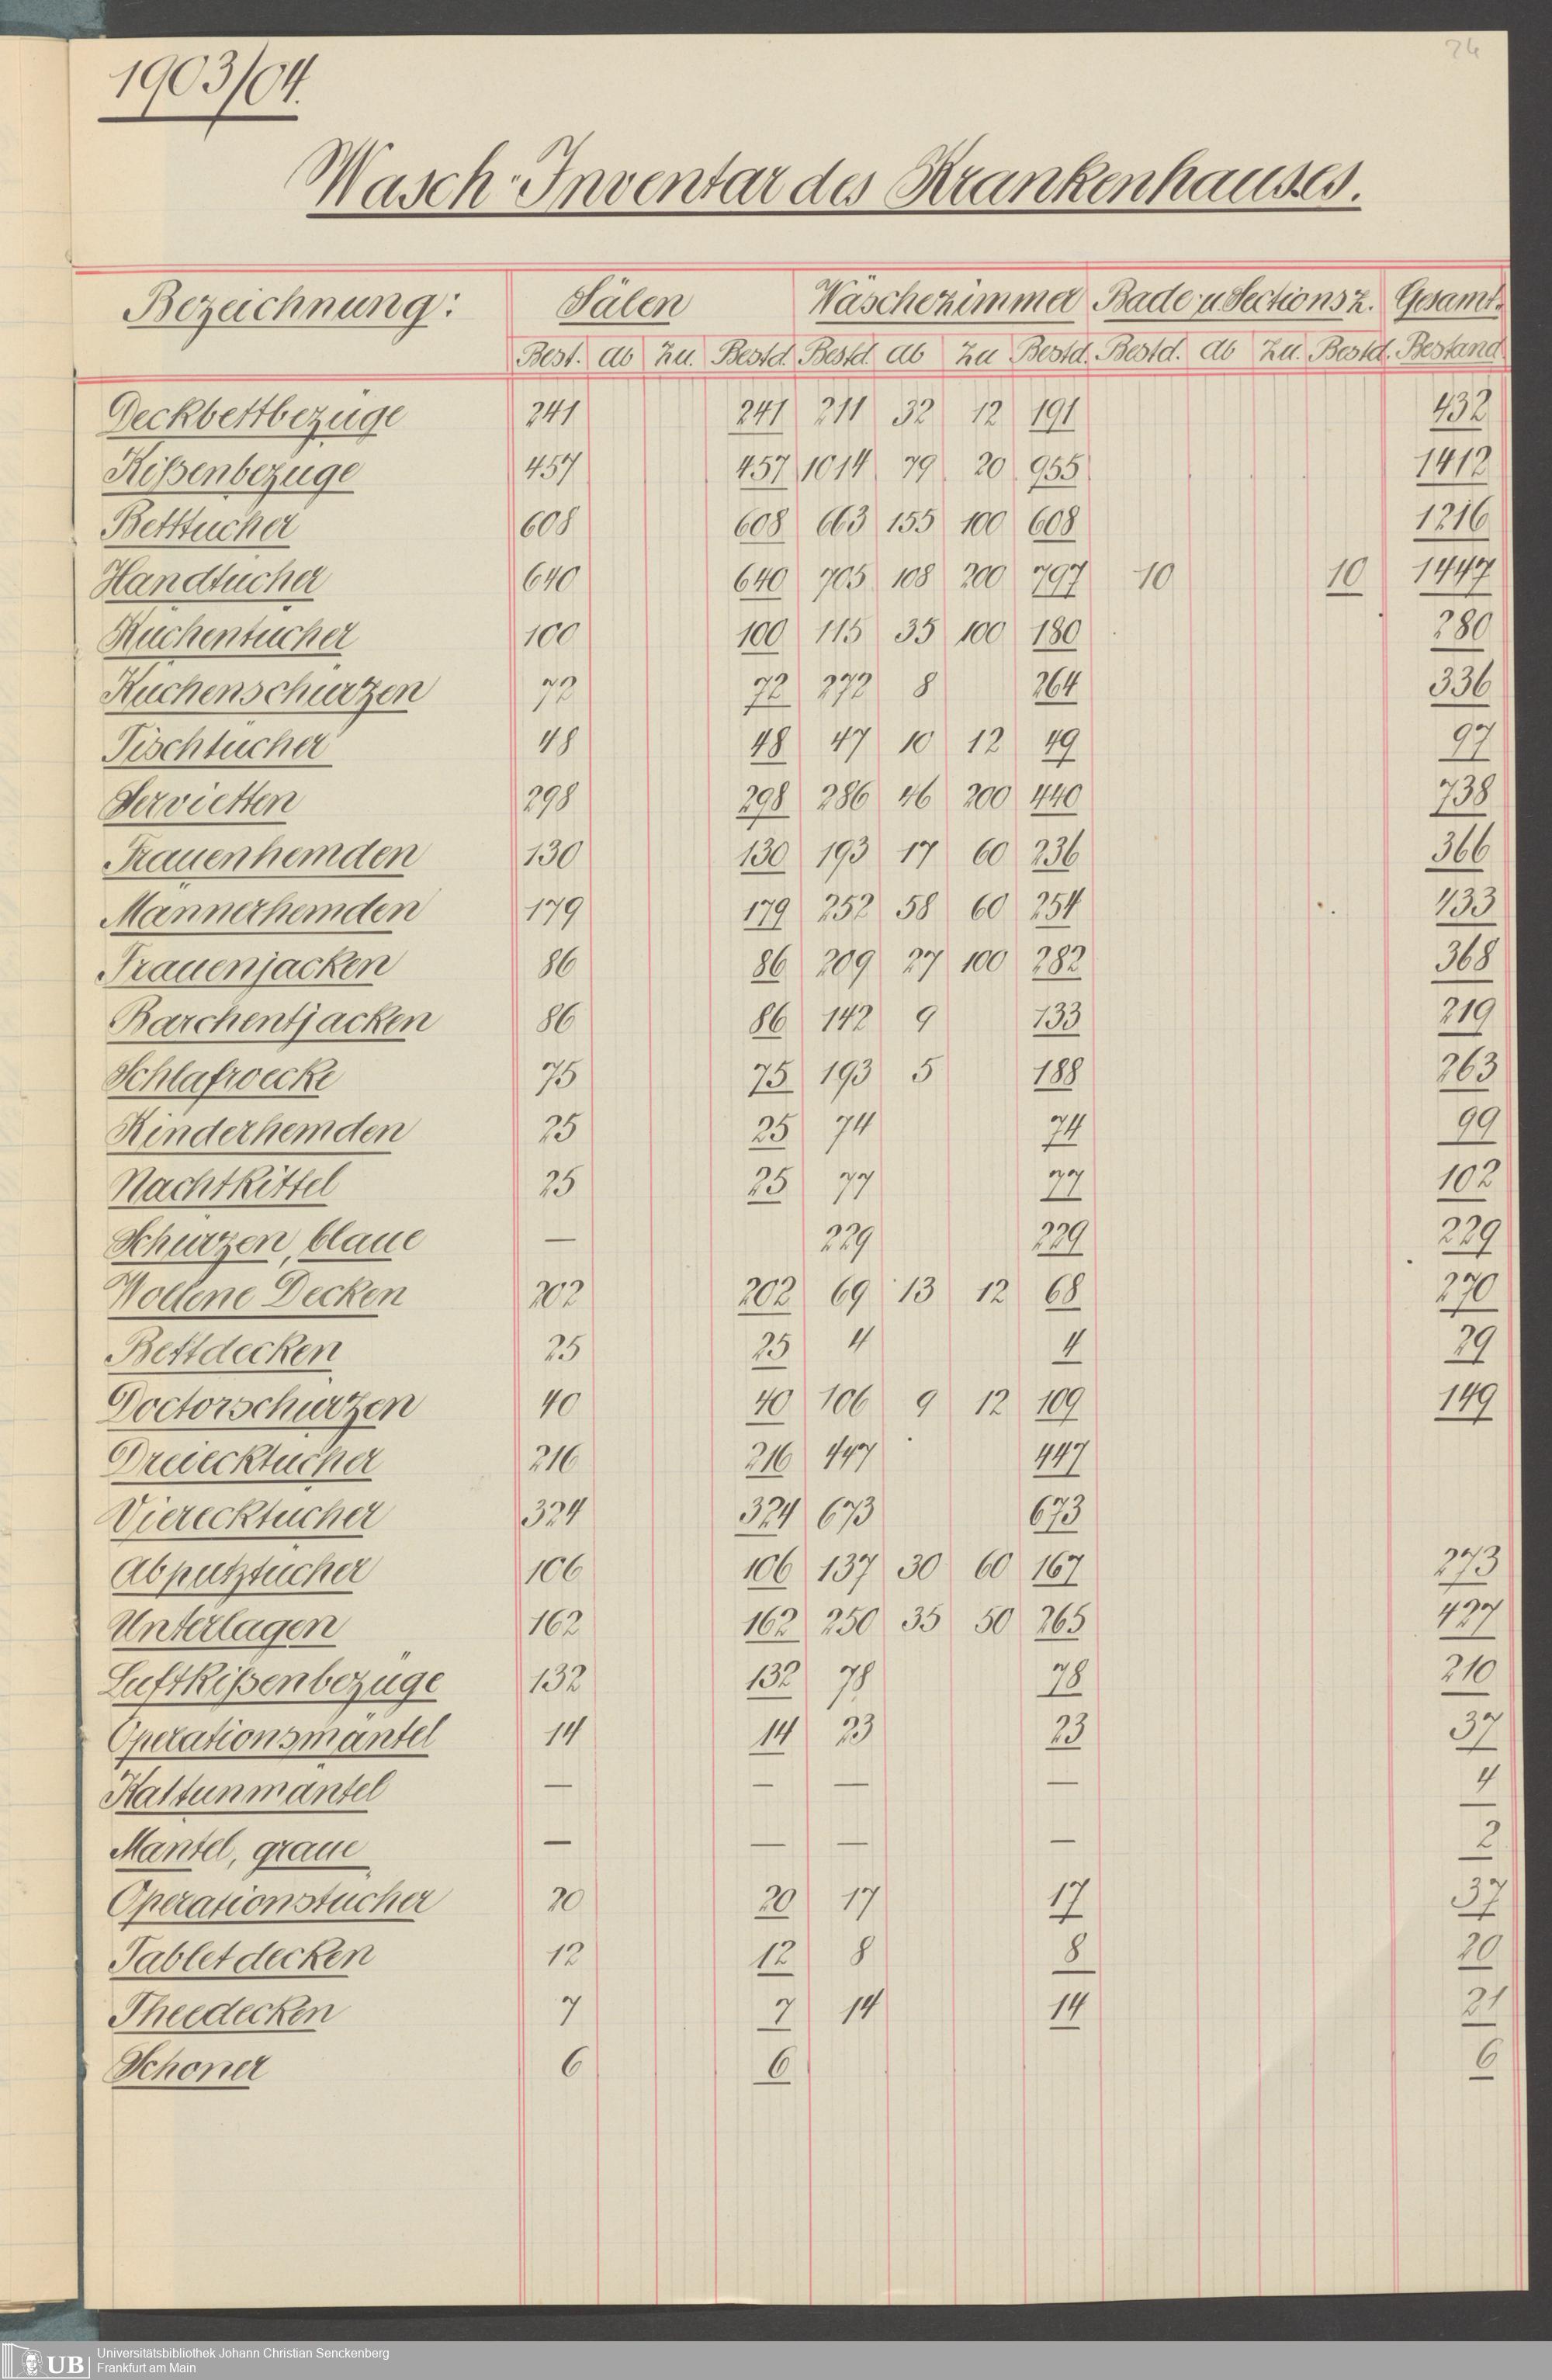 24
1903/04.
Wasch-Inventar des Krankenhauses.
Bezeichnung: Sälen Wäschezimmer Bade- u. Sectionsz. Gesamt-
Best. Ab Zu. Bestd. Bestd. Ab Zu Bestd. Bestd. Ab Zu. Bestd. Bestand
Deckbettbezüge 241 241 211 32 12 191 432
Kißenbezüge 457 457 1014 79 20 955 1412
Betttücher 608 608 663 155 100 608 1216
Handtücher 640 640 705 108 200 797 10 10 1447
Küchentücher 100 100 115 35 100 180 280
Küchenschürzen 72 72 272 8 264 336
Tischtücher 48 48 47 10 12 49 97
Servietten 298 298 286 46 200 440 738
Frauenhemden 130 130 193 17 60 236 366
Männerhemden 179 179 252 58 60 254 433
Frauenjacken 86 86 209 27 100 282 368
Barchentjacken 86 86 142 9 133 219
Schlafroecke 75 75 193 5 188 263
Kinderhemden 25 25 74 74 99
Nachtkittel 25 25 77 77 102
Schürzen, blaue — 229 229 229
Wollene Decken 202 202 69 13 12 68 270
Bettdecken 25 25 4 4 29
Doctorschürzen 40 40 106 9 12 109 149
Dreiecktücher 216 216 447 447
Vierecktücher 324 324 673 673
Abputztücher 106 106 137 30 60 167 273
Unterlagen 162 162 250 35 50 265 427
Luftkißenbezüge 132 132 78 78 210
Operationsmäntel 14 14 23 23 37
Kattunmäntel — — — — 4
Mäntel, graue — — — — 2
Operationstücher 20 20 17 17 37
Tabletdecken 12 12 8 8 20
Theedecken 7 7 14 14 21
Schoner 6 6 6
UB Universitätsbibliothek Johann Christian Senckenberg
Frankfurt am Main